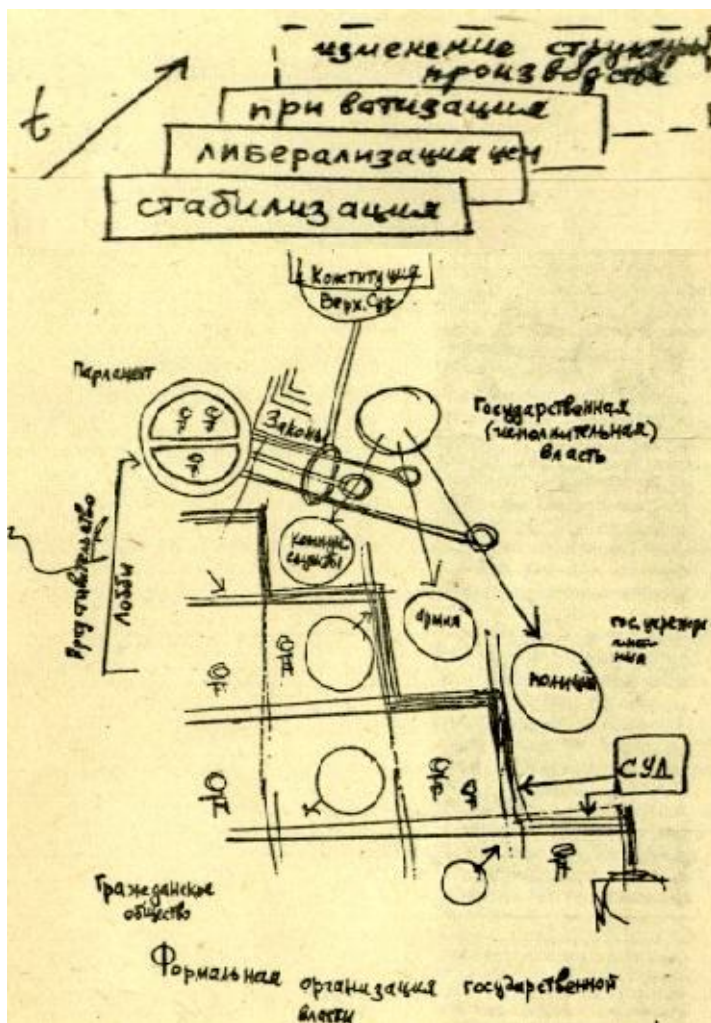 t
изменение структуры
производства
приватизация
либерализация цен
стабилизация
Конституция
Верх. Суд
Парламент
Законы
Государственная
(исполнительная)
власть
Лобби
службы
армия
полиция
СУД
Гражданское
общество
Формальная организация государственной
власти